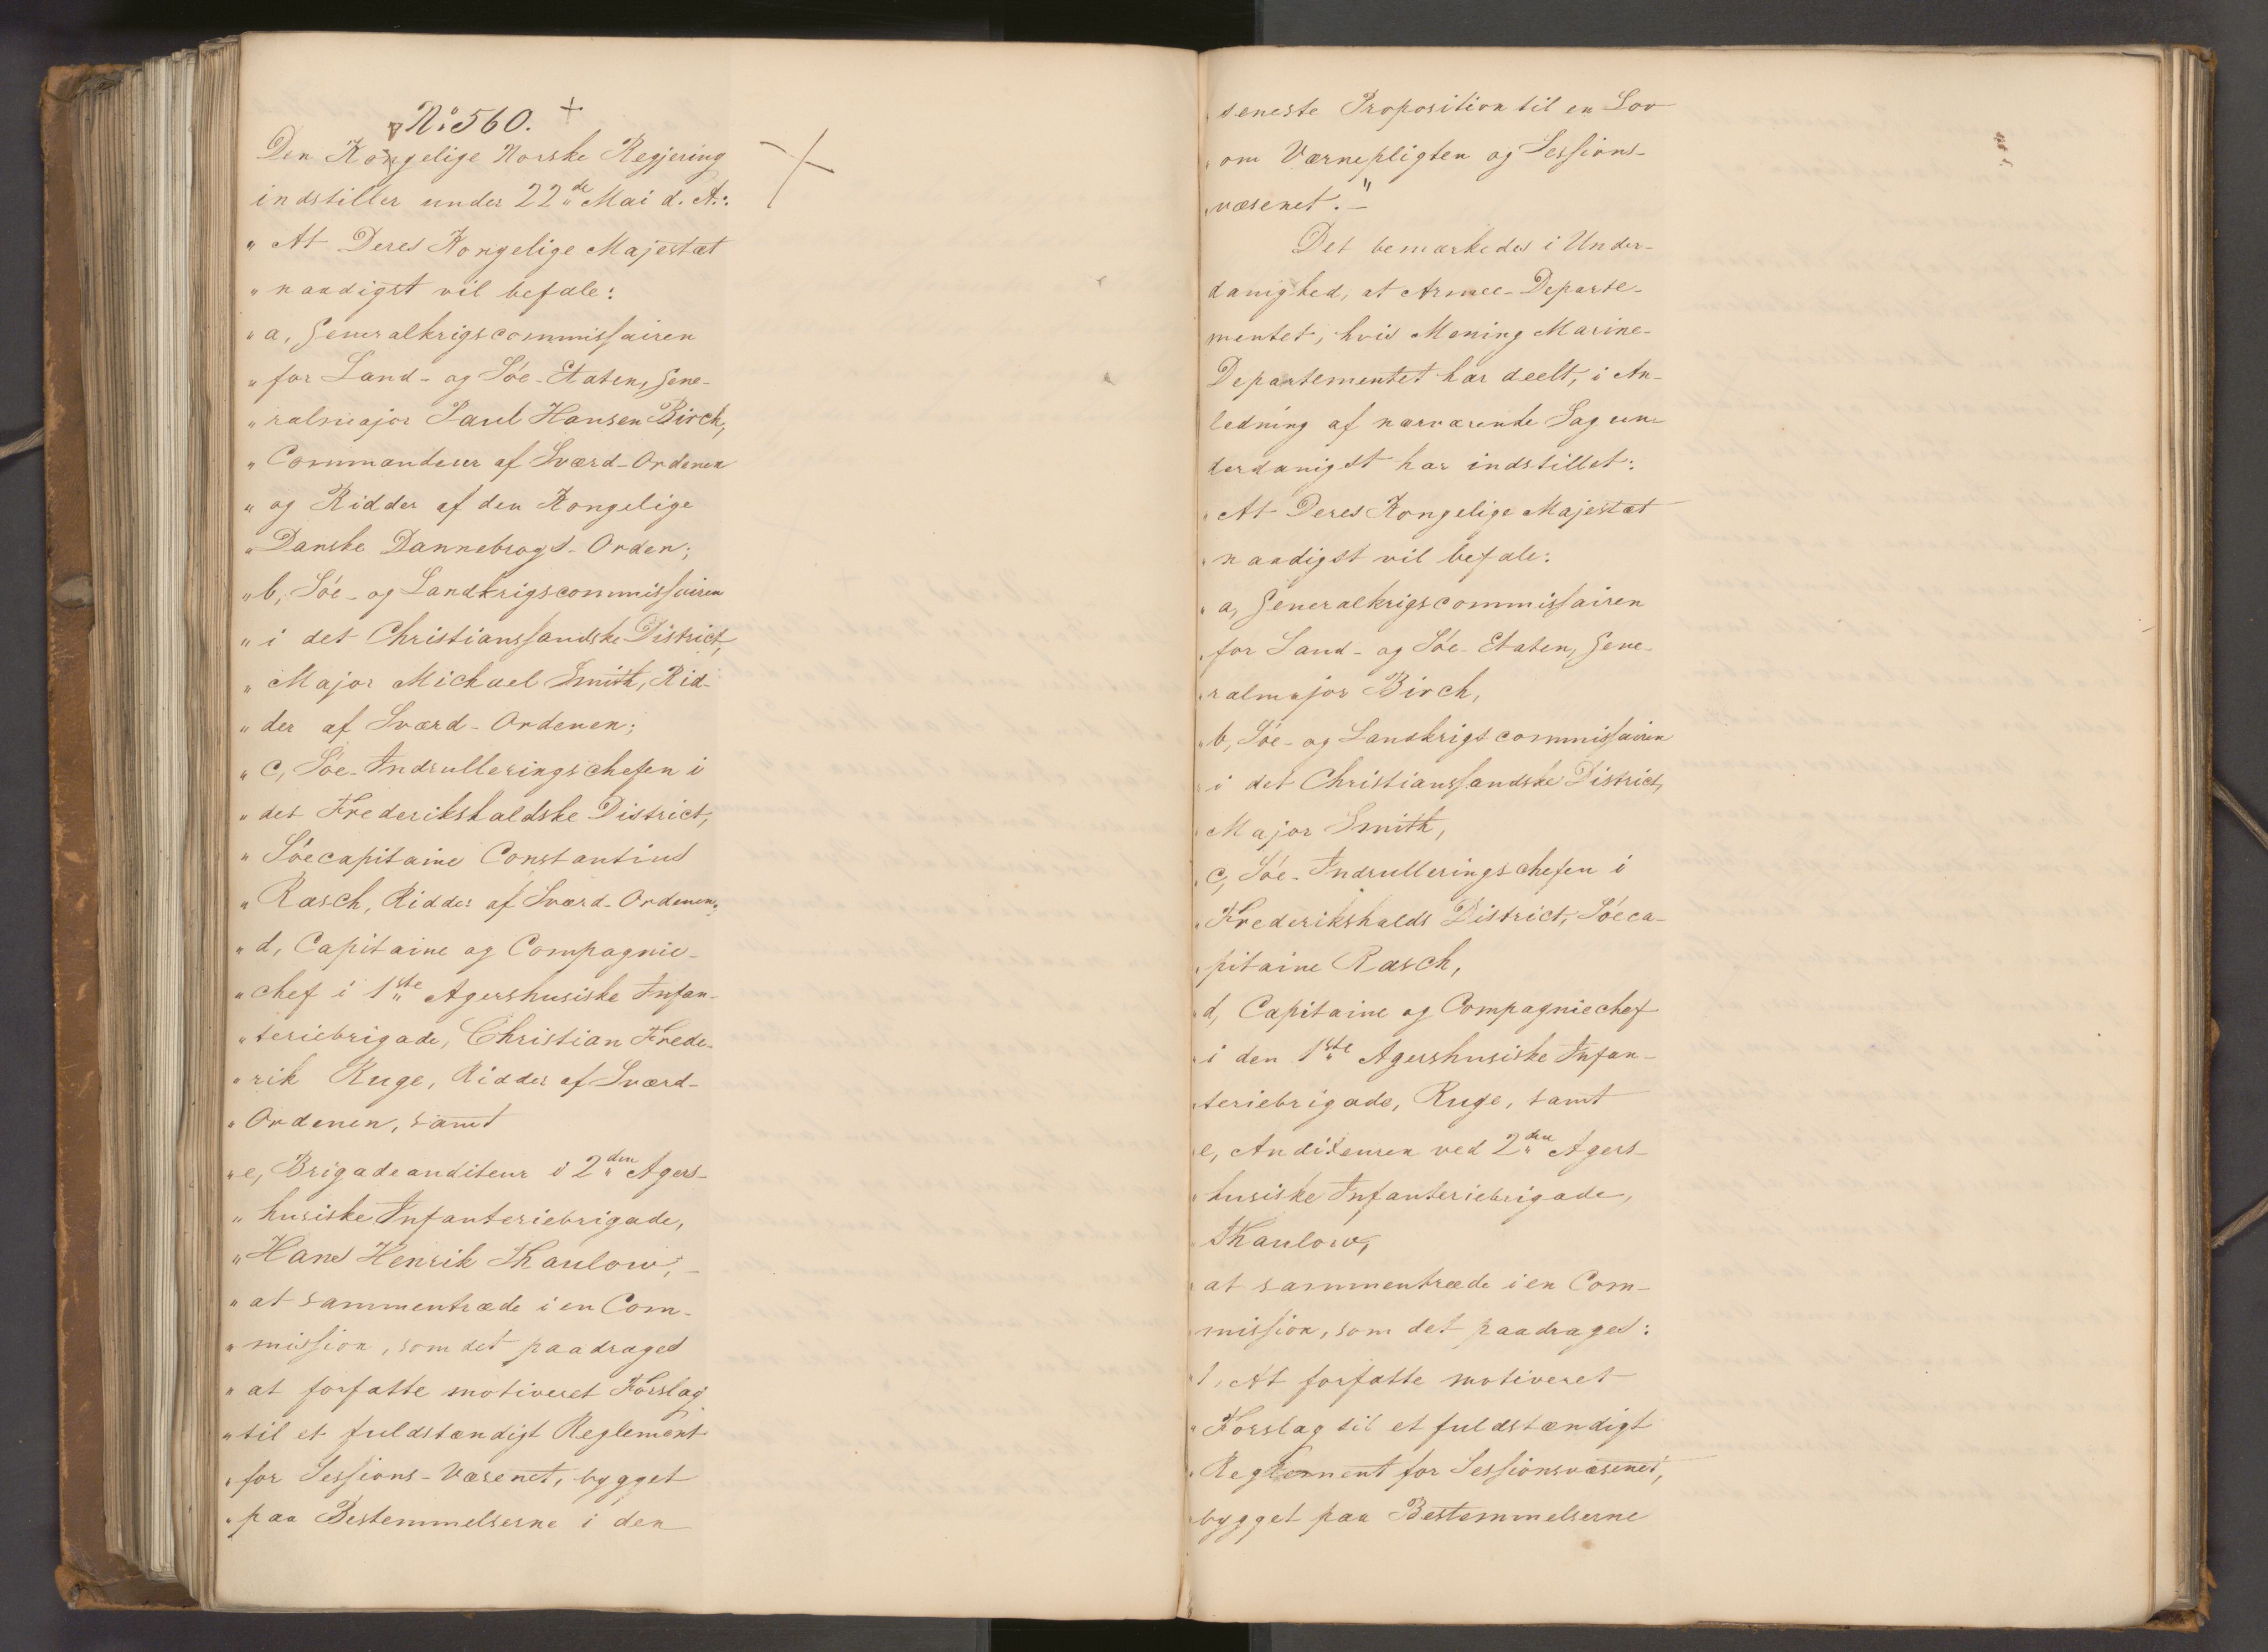 No 560. +
Den Kongelige Norske Regjering
indstiller under 22de Mai d. A.:
" At Deres Kongelige Majestæt
" naadigst vil befale:
" a, Generalkrigscommissairen
" for Land- og Søe-Etaten, Gene-
" ralmajor Paul Hansen Birch,
" Commandeur af Sværd-Ordenen
" og Ridder af den Kongelige
" Danske Dannebrogs-Orden;
" b, Søe- og Landkrigscommissairen
" i det Christianssandske District,
" Major Michael Smith, Rid-
" der af Sværd-Ordenen;
" c, Søe-Indrulleringschefen i
" det Frederikshaldske District,
" Søecapitaine Constantius
" Rasch, Ridder af Sværd-Ordenen;
" d, Capitaine og Compagnie-
" chef i 1ste Agershusiske Infan-
" teriebrigade, Christian Frede-
" rik Ruge, Ridder af Sværd-
" Ordenen, samt
" e, Brigadeauditeur i 2den Agers-
" husiske Infanteriebrigade,
" Hans Henrik Thaulow, -
" at sammentræde i en Com-
" mission, som det paadrages
" at forfatte motiveret Forslag
" til et fuldstændigt Reglement
" for Sessions-Væsenet, bygget
" paa Bestemmelserne i den
" seneste Proposition til en Lov
" om Værnepligten og Sessions-
" væsenet." -
Det bemærkedes i Under-
danighed, at Armee-Departe-
mentet, hvis Mening Marine-
Departementet har deelt, i An-
ledning af nærværende Sag un-
derdanigst har indstillet:
" At Deres Kongelige Majestæt
" naadigst vil befale:
" a, Generalkrigscommissairen
" for Land- og Søe-Etaten, Gene-
" ralmajor Birch,
" b, Søe- og Landkrigscommissairen
" i det Christianssandske District,
" Major Smith,
" c, Søe-Indrulleringschefen i
" Frederikshalds District, Søeca-
" pitaine Rasch,
" d, Capitaine og Compagniechef
" i den 1ste Agershusiske Infan-
" teriebrigade, Ruge, samt
" e, Auditeuren ved 2den Agers-
" husiske Infanteriebrigade,
" Thaulow,
" at sammentræde i en Com-
" mission, som det paadrages:
" 1, At forfatte motiveret
" Forslag til et fuldstændigt
" Reglement for Sessionsvæsenet,
" bygget paa Bestemmelserne